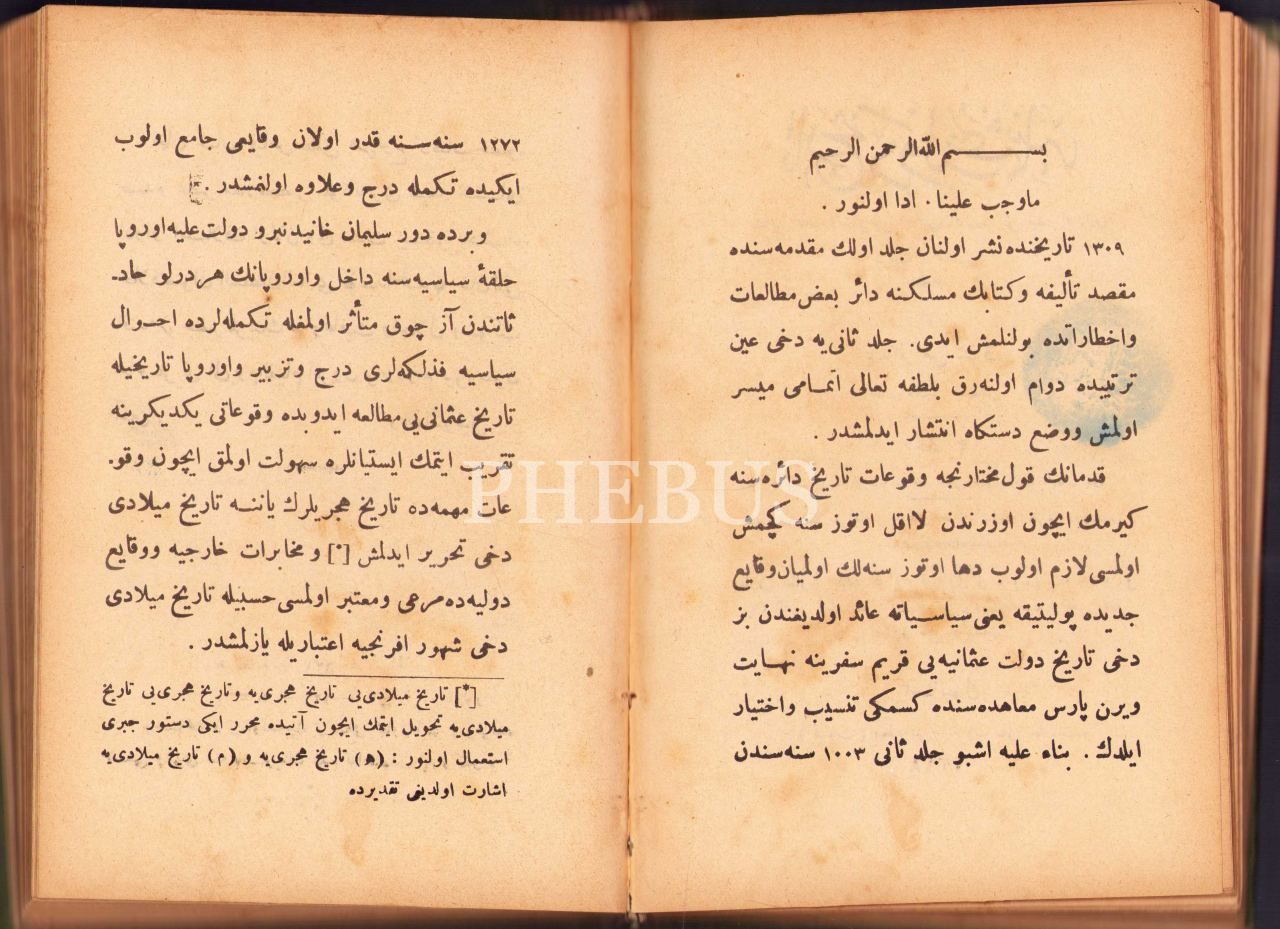 بســـــم الله الرحمن الرحيم
ماوجب علينا ٠ ادا اولنور .
١٣٠٩ تاريخنده نشر اولنان جلد اولك مقدمه‌سنده
مقصد تأليفه وكتابك مسلكنه دائر بعض مطالعات
واخطاراتده بولنلمش ايدى. جلد ثانى‌يه دخى عين
ترتيبده دوام اولنه‌رق بلطفه تعالى اتمامى ميسر
اولمش ووضع دستكاه انتشار ايدلمشدر .
قدمانك قول مختارنجه وقوعات تاريخ دائره‌سنه
كيرمك ايچون اوزرندن لااقل اوتوز سنه كچمش
اولمسى لازم اولوب دها اوتوز سنه‌لك اولميان وقايع
جديده پوليتيقه يعنى سياسياته عائد اولديغندن بز
دخى تاريخ دولت عثمانيه‌يى قريم سفرينه نهايت
ويرن پارس معاهده‌سنده كسمكى تنسيب واختيار
ايلدك . بناء عليه اشبو جلد ثانى ١٠٠٣ سنه‌سندن
١٢٧٢ سنه‌سنه قدر اولان وقايعى جامع اولوب
ايكيده تكمله درج وعلاوه اولنمشدر .
وبرده دور سليمان خانيدنبرو دولت عليه اوروپا
حلقهٔ سياسيه‌سنه داخل واوروپانك هردرلو حاد-
ثاتندن آز چوق متأثر اولمغله تكمله‌لرده احوال
سياسيه فذلكه‌لرى درج وتزبير واوروپا تاريخيله
تاريخ عثمانى‌يى مطالعه ايدوبده وقوعاتى يكديكرينه
تقريب ايتمك ايستيانلره سهولت اولمق ايچون وقو-
عات مهمه‌ده تاريخ هجريلرك ياننه تاريخ ميلادى
دخى تحرير ايدلمش [*] و مخابرات خارجيه ووقايع
دوليه‌ده مرعى ومعتبر اولمسى حسبيله تاريخ ميلادى
دخى شهور افرنجيه اعتباريله يازلمشدر .
[*] تاريخ ميلادى‌يى تاريخ هجرى‌يه وتاريخ هجرى‌يى تاريخ
ميلادى‌يه تحويل ايتمك ايچون آتيده محرر ايكى دستور جبرى
استعمال اولنور : (ه) تاريخ هجرى‌يه و (م) تاريخ ميلادى‌يه
اشارت اولديغى تقديرده
PHEBUS